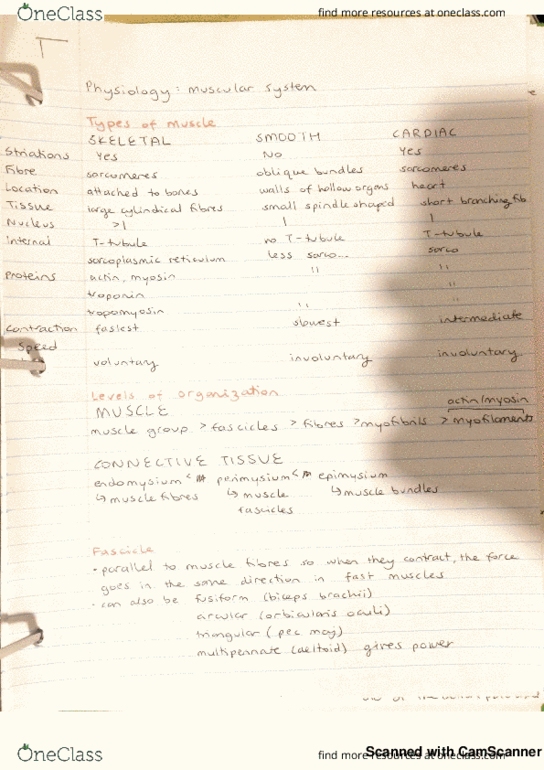 OneClass
find more resources at oneclass.com
Physiology: muscular system
Types of muscle
SKELETAL SMOOTH CARDIAC
Striations Yes No Yes
Fibre sarcomeres oblique bundles sarcomeres
Location attached to bones walls of hollow organs heart
Tissue large cylindical fibres small spindle shaped short branching fib
Nucleus >1 1 1
internal T-tubule no T-tubule T-tubule
sarcoplasmic reticulum less sarco... sarco
Proteins actin, myosin " "
troponin "
tropomyosin " "
contraction fastest slowest intermediate
speed
voluntary involuntary involuntary
Levels of organization
MUSCLE actin/myosin
muscle group > fascicles > fibres > myofibrils > myofilaments
CONNECTIVE TISSUE
endomysium < perimysium < epimysium
↳ muscle fibres ↳ muscle ↳ muscle bundles
fascicles
Fascicle
• parallel to muscle fibres so when they contract, the force
goes in the same direction in fast muscles
• can also be fusiform (biceps brachii)
circular (orbicularis oculi)
triangular (pec maj)
multipennate (deltoid) gives power
OneClass
find more resources at oneclass.com
Scanned with CamScanner